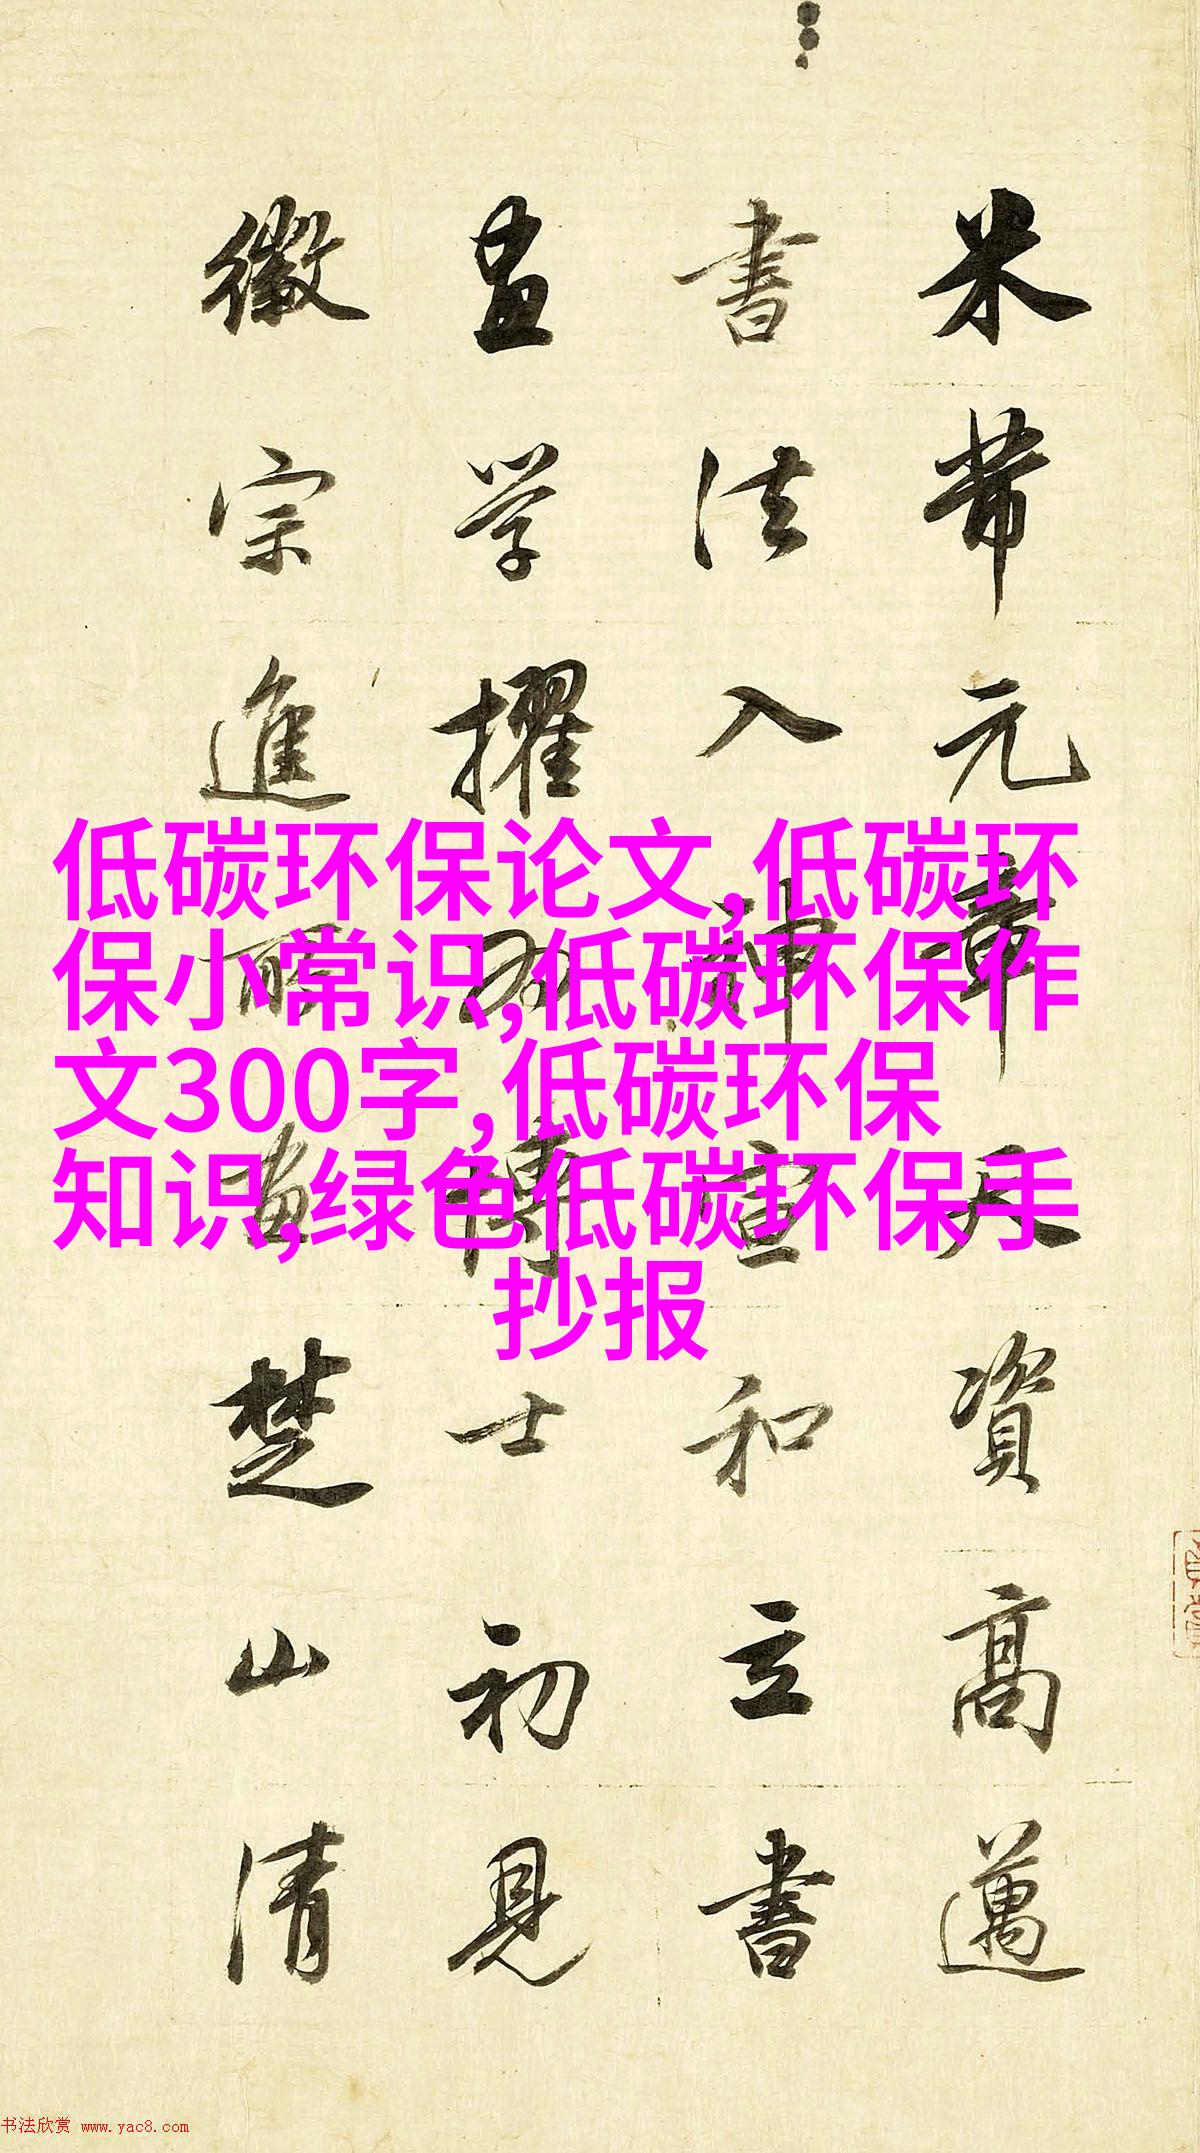 低碳环保论文,低碳环
保小常识,低碳环保作
文300字,低碳环保
知识,绿色低碳环保手
抄报
米芾元章天資高邁
書法入神宣和立書
畫学擢為博士初見
徽宗進所畫楚山清
书法欣赏 www.yac8.com